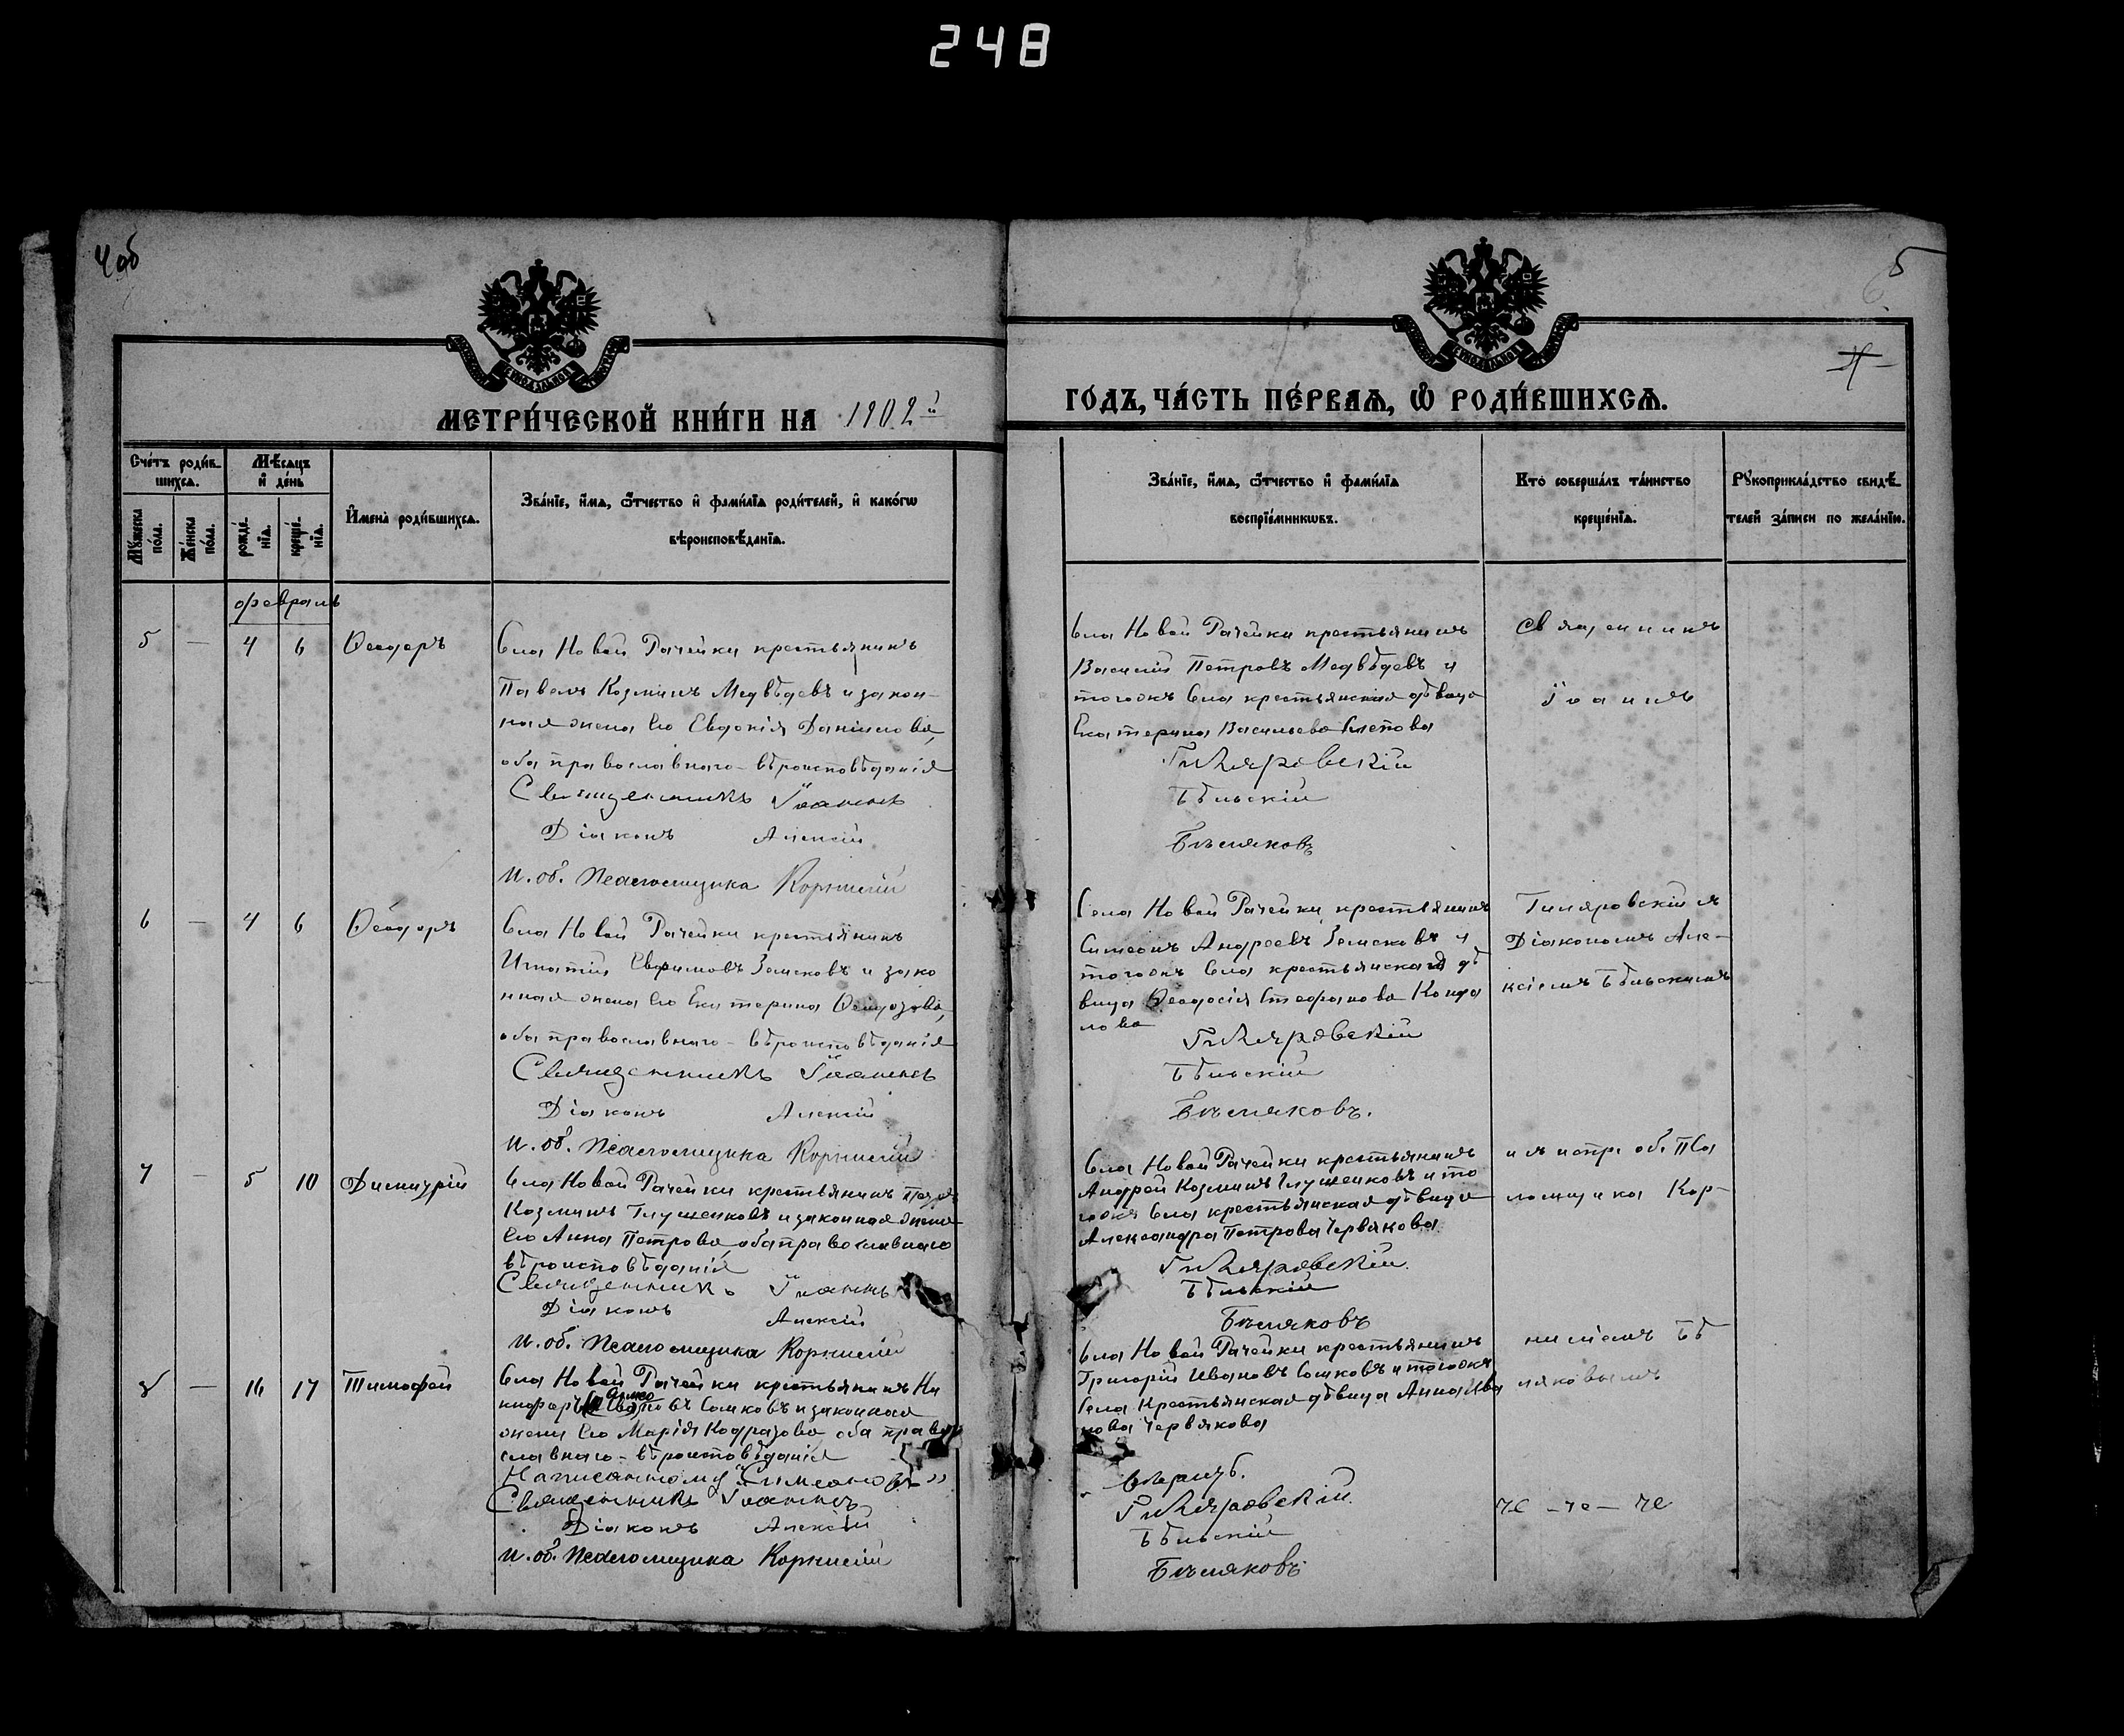 248
4 об
5
6
МЕТРИ́ЧЕСКОЙ КНИ́ГИ НА 1902й
ГО́ДЪ, ЧА́СТЬ ПЕ́РВАѦ, Ѽ РОДИ́ВШИХСѦ.
Сче́тъ роди́в-
шихсѧ.
Мѣ́сѧцъ
и҆ де́нь
Мꙋ́жеска по́ла.
Же́нска по́ла.
рожде́-
нїѧ.
креще́-
нїѧ.
И҆мена̀ роди́вшихсѧ.
Зва́нїе, и҆́мѧ, ѻ҆́тчество и҆ фами́лїѧ роди́телей, и҆ како́гѡ
вѣроисповѣ́данїѧ.
Зва́нїе, и҆́мѧ, ѻ҆́тчество и҆ фами́лїѧ
воспрїе́мникѡвъ.
Кто̀ соверша́лъ та́инство
креще́нїѧ.
Рꙋкоприкла́дство свидѣ́-
телей за́писи по жела́нїю.
февраль
5 — 4 6 Ѳеодоръ
Села Новой Рачейки крестьянинъ
Павелъ Козминъ Медвѣдевъ и закон-
ная жена его Евдокія Данилова,
оба православнаго-вѣроисповѣданія
Священникъ Іоаннъ
Діаконъ Алексій
И. об. Псаломщика Корнилій
Села Новой Рачейки крестьянинъ
Василій Петровъ Медвѣдевъ и
тогожъ села крестьянская дѣвица
Екатерина Васильева
Гиляровскій
Бѣльскій
Бѣляковъ
Священникъ
Іоаннъ
6 — 4 6 Ѳеодоръ
Села Новой Рачейки крестьянинъ
Игнатій Евфимовъ Земсковъ и зако
нная жена его Екатерина
оба православнаго-вѣроисповѣданія
Священникъ Іоаннъ
Діаконъ Алексій
И. об. Псаломщика Корнилій
Села Новой Рачейки крестьянинъ
Симеонъ Андреевъ Земсковъ и
тогожъ села крестьянская дѣ
вица Ѳеодосія Стефанова
лова
Гиляровскій
Бѣльскій
Бѣляковъ.
Гиляровскій съ
Діакономъ Але-
ксіемъ Бѣльскимъ
7 — 5 10 Димитрій
Села Новой Рачейки крестьянинъ Петръ
Козминъ Глущенковъ и законная жена
его Анна Петрова, оба православнаго
вѣроисповѣданія
Священникъ Іоаннъ
Діаконъ Алексій
И. об. Псаломщика Корнилій
Села Новой Рачейки крестьянинъ
Андрей Козминъ Глущенковъ и то
гожъ села крестьянская дѣвица
Александра Петрова Червякова
Гиляровскій
Бѣльскій
Бѣляковъ
и съ испр. об. Пса
ломщика Кор-
8 — 16 17 Тимофей
Села Новой Рачейки крестьянинъ Ни
кифоръ Сомковъ и законная
жена его Марія оба право
славнаго-вѣроисповѣданія
Написанному "Симеоновъ"
Священникъ Іоаннъ
Діаконъ Алексій
И. об. Псаломщика Корнилій
Села Новой Рачейки крестьянинъ
Григорій Ивановъ Сомковъ и тогожъ
села крестьянская дѣвица Анна Ива
нова Червякова
вѣрить.
Гиляровскій
Бѣльскій
Бѣляковъ
ниліемъ Бѣ
ляковымъ